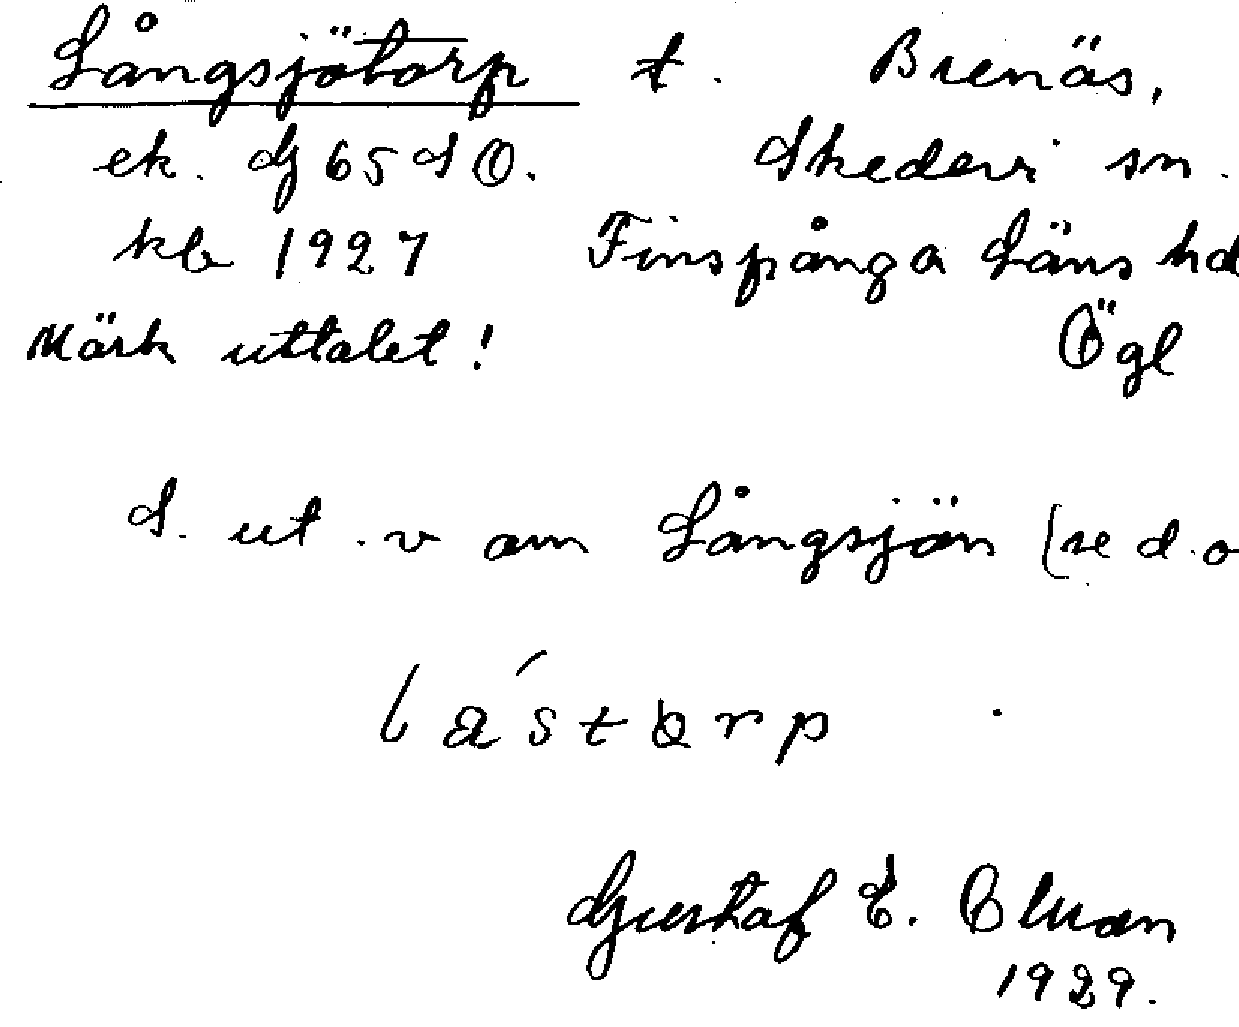 Långsjötorp t. Brenäs,
ek. G 65 S O. Skedevi sn.
kb 1927 Finspånga Läns hd
Märk uttalet! Ögl
S. ut. v om Långsjön (se d.o
Gustaf E. 
1929.